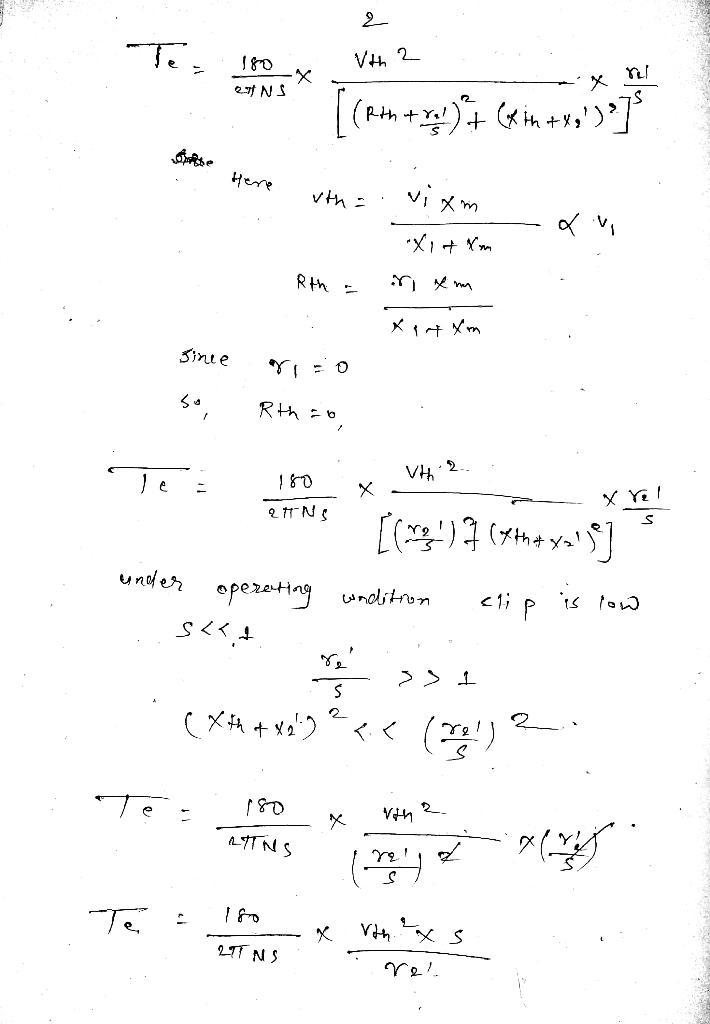 2
Te = 180/2πNS × Vth2/[(Rth + r2'/s)2 + (Xth + X2')2] × r2'/s
Here Vth = V1 Xm/X1 + Xm ∝ V1
Rth = r1 Xm/X1 + Xm
Since r1 = 0
So, Rth = 0,
Te = 180/2πNS × Vth2/[(r2'/s)2 + (Xth + X2')2] × r2'/s
under operating condition slip is low
S << 1
r2'/s >> 1
(Xth + X2')2 << (r2'/s)2
Te = 180/2πNS × Vth2/(r2'/s)2 × (r2'/s)
Te = 180/2πNS × Vth2 × S/r2'